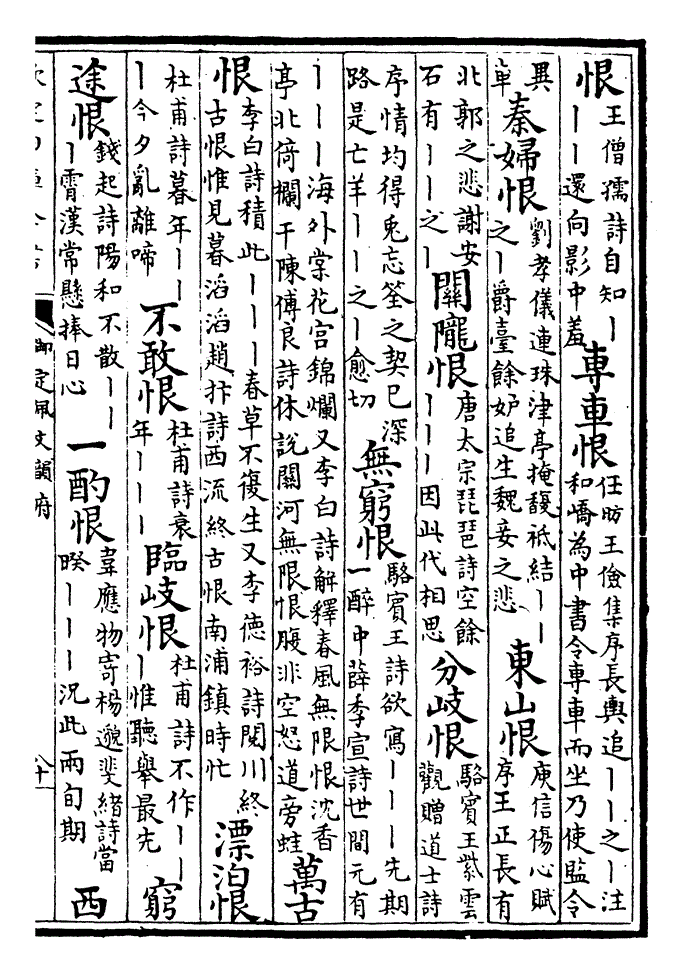 恨
王僧孺詩自知丨
丨丨還向影中羞
專車恨
任昉王儉集序長輿追丨丨之丨注
和嶠為中書令專車而坐乃使監令
異
車
秦婦恨
劉孝儀連珠津亭掩馥祗結丨丨
之丨爵臺餘妒追生魏妾之悲
東山恨
庾信傷心賦
序王正長有
北郭之悲謝安
石有丨丨之丨
關隴恨
唐太宗琵琶詩空餘
丨丨丨因此代相思
分岐恨
駱賓王紫雲
觀贈道士詩
序情均得兎忘筌之契已深
路是亡羊丨丨之丨愈切
無窮恨
駱賓王詩欲寫丨丨丨先期
一醉中薛季宣詩世間元有
丨丨丨海外棠花宫錦爛又李白詩解釋春風無限恨沈香
亭北倚欄干陳傅良詩休說關河無限恨腹非空怒道旁蛙
萬古
恨
李白詩積此丨丨丨春草不復生又李德裕詩閱川終
古恨惟見暮滔滔趙抃詩西流終古恨南浦鎮時忙
漂泊恨
杜甫詩暮年丨丨
丨今夕亂離啼
不敢恨
杜甫詩衰
年丨丨丨
臨岐恨
杜甫詩不作丨丨
丨惟聽舉最先
窮
途恨
錢起詩陽和不散丨丨
丨霄漢常懸捧日心
一酌恨
韋應物寄楊邈斐緒詩當
暌丨丨丨況此兩旬期
西
御定佩文韻府